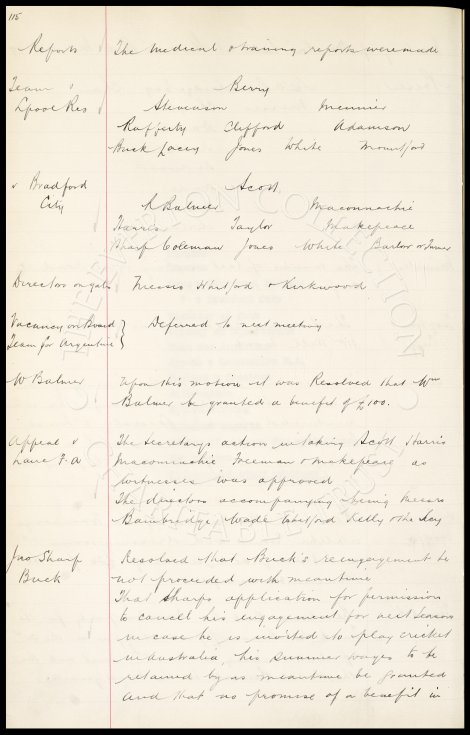 115
Reports The Medical & training reports were made
Team v Berry
Lpool Res Stevenson Meunier
Rafferty Clifford Adamson
Buck Lacey Jones White Mountford
v Bradford Scott
City R Balmer Maconnachie
Harris Taylor Makepeace
Sharp Coleman Jones White Barlow or Turner
Directors on gate Messrs Whitford & Kirkwood
Vacancy on Board Deferred to next meeting
Team for Argentine
W Balmer Upon this motion it was Resolved that Wm
Balmer be granted a benefit of £100.
Appeal v The Secretarys action in taking Scott Harris
Lanc F.A Maconnachie Freeman & Makepeace as
witnesses was approved
The directors accompanying being Messrs
Bainbridge, Wade Whitford Kelly & the Secy
Jno Sharp Resolved that Buck's reengagement be
Buck not proceeded with meantime
That Sharps application for permission
to cancel his engagement for next Season
in case he is invited to play cricket
in Australia, his summer wages to be
retained by us meantime be granted
and that no promise of a benefit in